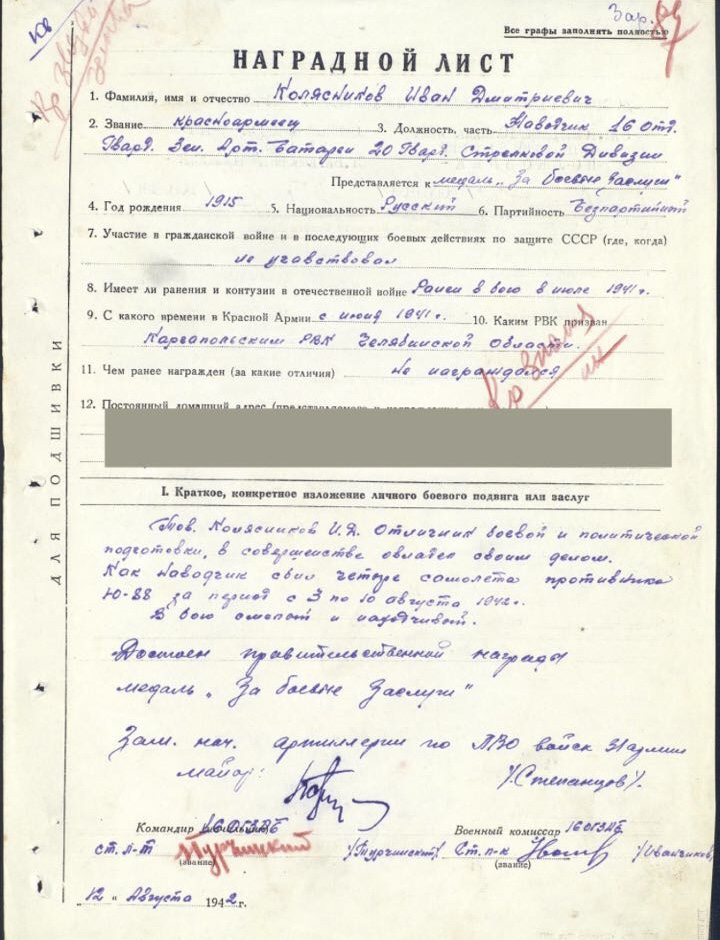 Зар.
Все графы заполнять полностью
НАГРАДНОЙ ЛИСТ
1. Фамилия, имя и отчество Колясников Иван Дмитриевич
2. Звание красноармеец 3. Должность, часть Наводчик 16 отд.
Гвард. Зен. Арт. Батареи 20 Гвард. Стрелковой Дивизии
Представляется к медаль „За боевые заслуги"
4. Год рождения 1915 5. Национальность Русский 6. Партийность Безпартийный
7. Участие в гражданской войне и в последующих боевых действиях по защите СССР (где, когда)
не учавствовал
8. Имеет ли ранения и контузии в отечественной войне Ранен в бою в июле 1941 г.
9. С какого времени в Красной Армии с июня 1941 г. 10. Каким РВК призван
Каргапольским РВК Челябинской области.
11. Чем ранее награжден (за какие отличия) не награждался
Кр звезда
12. Постоянный домашний адрес
ДЛЯ ПОДШИВКИ
I. Краткое, конкретное изложение личного боевого подвига или заслуг
Тов. Колясников И.Д. Отличник боевой и политической
подготовки, в совершенстве овладел своим делом.
Как наводчик сбил четыре самолета противника
Ю-88 за период с 3 по 10 августа 1942 г.
В бою смелый и находчивый.
Достоин правительственной награды
медаль „За боевые Заслуги"
Зам. нач. артиллерии по ПВО войск 3 армии
майор: /Степанцов/.
Командир 16 ОГЗАБ Военный комиссар 16 ОГЗАБ
ст. л-т Турчинский /Турчинский/ Ст. п-к /Иванчиков/
(звание) (звание)
„12" Августа 1942 г.